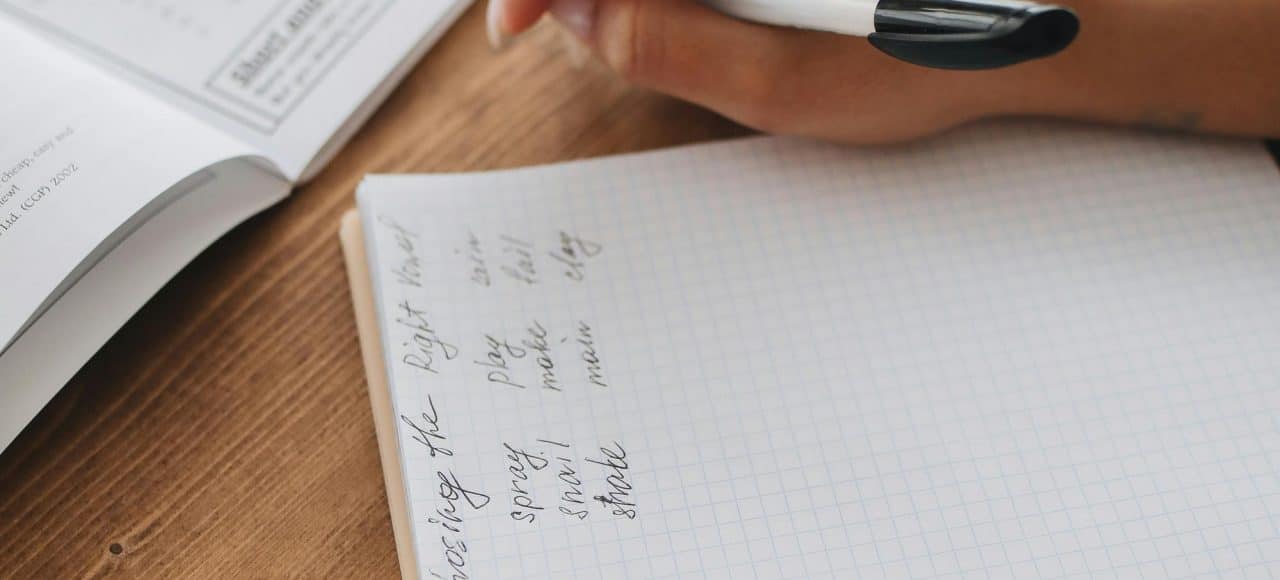 Short and
cheap, easy and
new!
Ltd. (CGP) 2002
hosing the Right Vowel
spray play rain
snail make tail
main clay